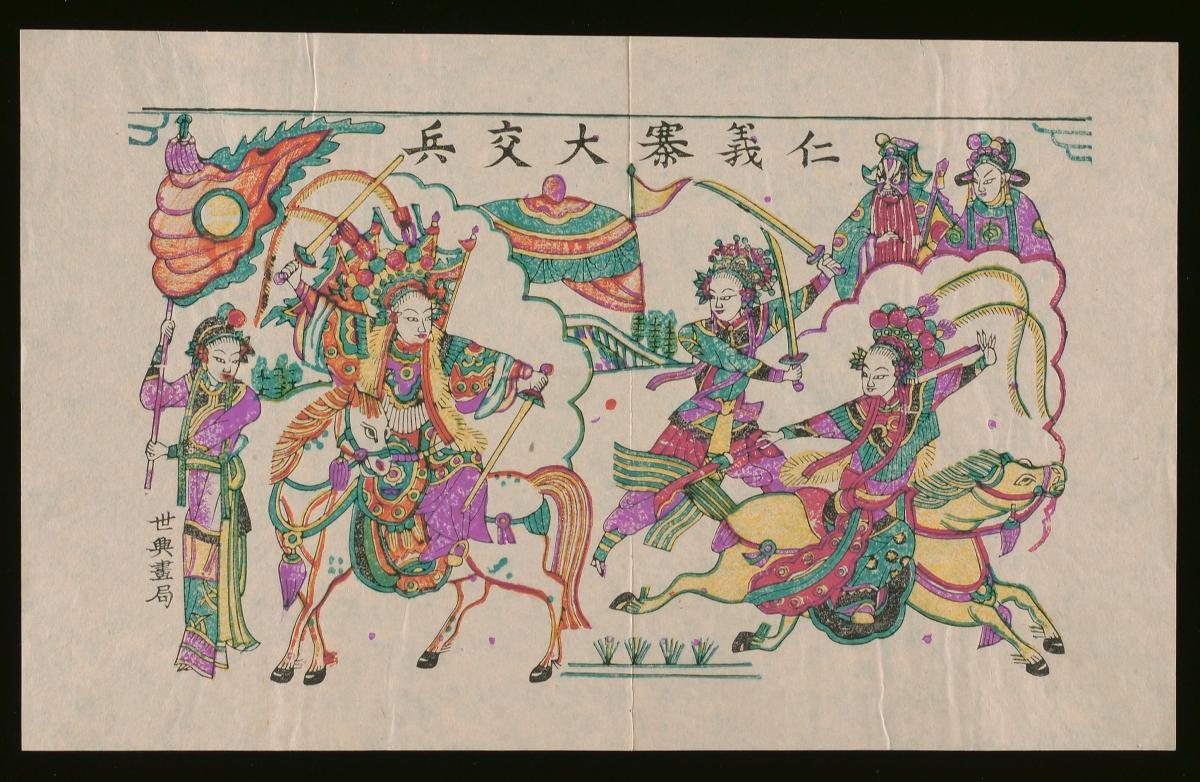 仁義寨大交兵
世興畫局